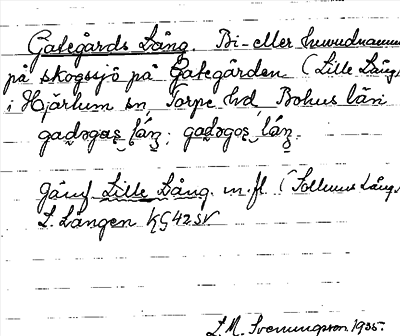 Gategårds Lång. Bi- eller huvudnamn
på skogssjö på Gategården (Lille Lång
i Hjärtum sn Torpe hd Bohus län
Jämf Lille Lång m. fl. (Sollums Lång
L. Lången KG 42 SV
L. M. Svenungsson 1935.